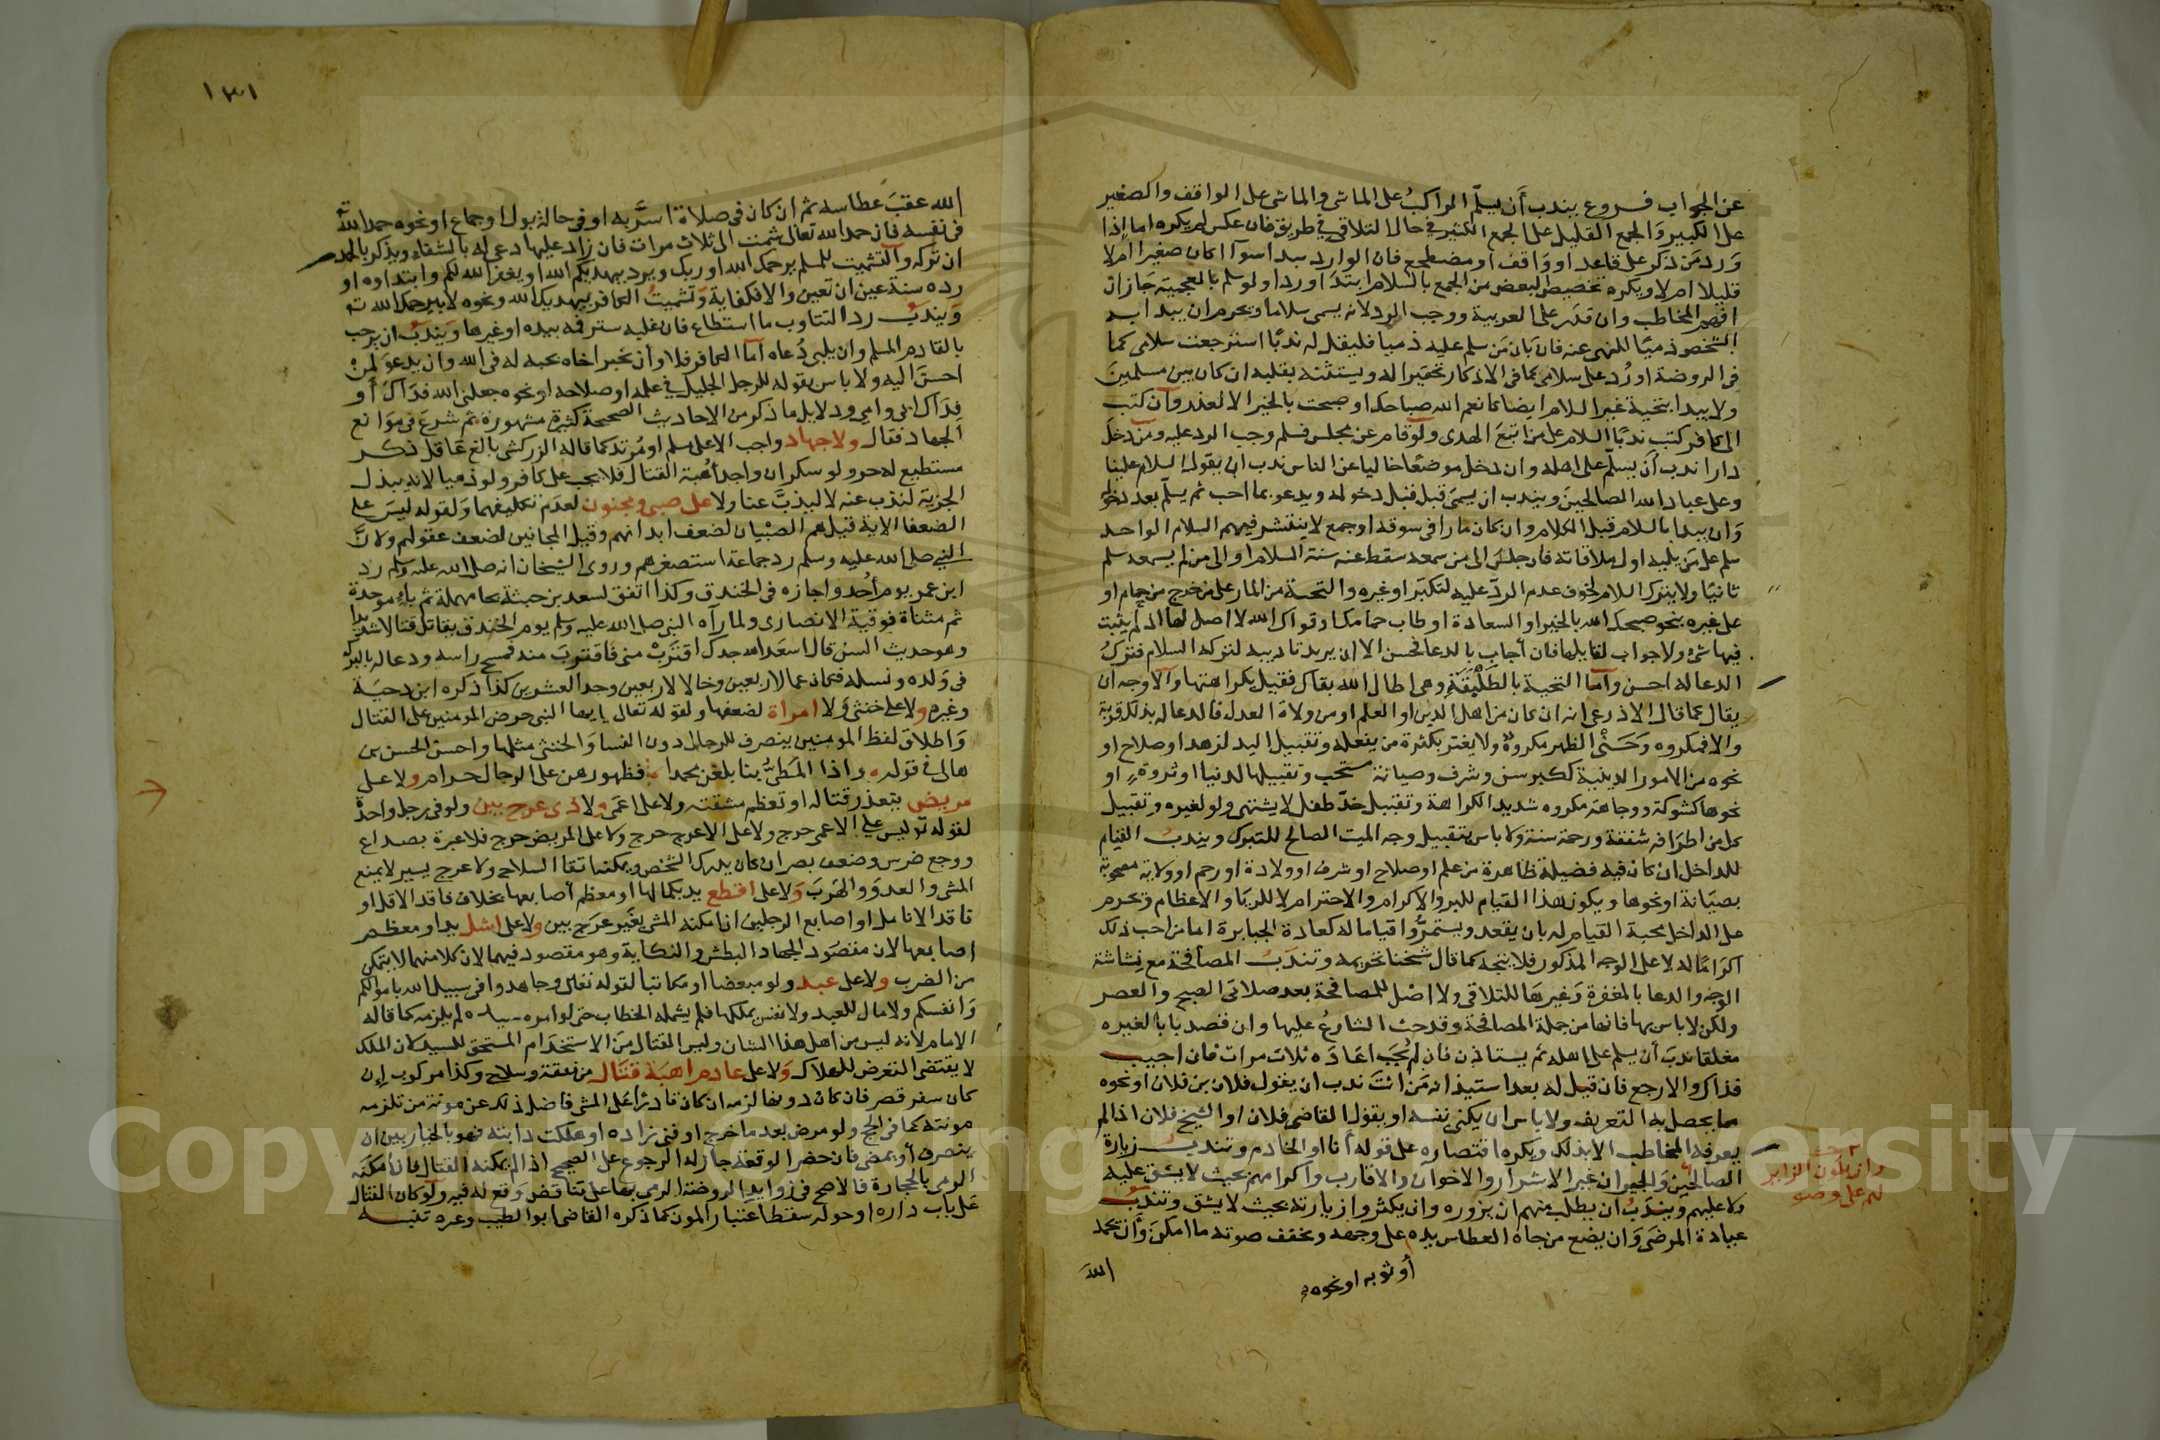 عن الجواب فروع يندب أن يسلّم الراكبُ على الماشى والماشى على الواقف والصغير
على الكبير والجمع القليل على الجمع الكثير في حال التلاقى في طريق فان عكس لم يكره اما إذا
وَرد مَن ذكر على قاعد او وَاقف او مضطجع فان الوارد يبدا سوآ اكان صغيرا ام لا
قليلا ام لا ويكره تخصيص البعض من الجمع بالسلام ابتدَا وردا ولو سلم بالعجمية جَاز ان
افهم المخاطب وان قدَر على العربية ووجب الرد لانه يسمى سلاما ويحرم ان يبدا به
الشخص ذميًا للنهى عنه فان بَان مَن سلم عليه ذميا فليقل له ندبًا استرجعت سلامى كما
فى الروضة او رُد على سلامى كما فى الاذكار تحقيرا له ويستثنه بقلبه ان كان بين مسلمينَ
ولا يبدا بتحية غير السلام ايضا كانعم الله صباحك او صبحت بالخير الا لعذر وَان كتب
الى كافر كتب ندبًا السلام على من اتبعَ الهدى ولو قام عن مجلس فسلم وجب الرد عليه ومن دخل
دارا ندب أن يسلّم على اهله وان دخل موضعًا خاليا عن الناس ندب ان يقول السلام علينا
وعلى عباد الله الصالحينَ ويندب ان يسمىَ قبل دخوله ويدعو بما احب ثم يسلّم بعد دخوله
وَان يبدا بالسلام قبل الكلام وان كان مارا فى سوق او جمع لا ينتشر فيهم السلام الواحد
سلم على مَن يليه اول ملاقاته فان جلسَ الى من سمعه سقط عنه سنة السلام او الى من لم يسمعه سلم
ثانيًا ولا يترك السلام لخوف عدم الردّ عليه لتكبر او غيره والتحية من المار على من خرج من حمام او
على غيره بنحو صبحك الله بالخير او السعادة او طاب حمامك او قواك الله لا اصل لها اذ لم يثبت
فيها شئ ولا جواب لقايلها فان أجاب بالدعا فحسن الا ان يريد تاديبه لتركه السلام فتركُ
الدعا له احسن وأما التحية بالطَلْبَقَة وهى اطال الله بقاك فقيل بكراهتها والاوجه ان
يقال كما قال الاذرعى انه ان كان من اهل الدين او العلم او من ولاة العدل فالدعا له بذلك قربة
والا فمكروه وَحَنْىُ الظهر مكروهٌ ولا يغتر بكثرة من يفعله وتقبيل اليد لزهد او صلاح او
نحوه من الامور الدينية ككبر سن وشرف وصيانة مستحب وتقبيلها لدنيا او ثروة او
نحوها كشوكة ووجاهة مكروه شديد الكراهة وتقبيل خدّ طفل لا يشتهى ولو لغيره وتقبيل
كل من اطرَافه شفقة ورحمة سنة ولا باس بتقبيل وجه الميت الصالح للتبرك ويندبُ القيام
للداخل ان كان فيه فضيلة ظاهرة من علم او صلاح او شرف او ولادة او رحم او ولاية مصحوبة
بصيَانة او نحوها ويكون هذا القيام للبر والاكرام والاحترام لا للريَا والاعظام ويحرم
على الداخل محبة القيام له بان يقعد ويستمرُّوا قياما له كعادة الجبابرة اما من احب ذلك
اكرَامًا له لا على الوجه المذكور فلا يتجه كما قال شيخنا تحريمه وتندبُ المصافحة مع بشاشة
الوجه والدعا بالمغفرة وَغيرهَا للتلاقى ولا اصْل للمصافحة بعد صلاتى الصبح والعصر
ولكن لا باس بها فانها من جملة المصافحة وقد حث الشارعُ عليها وان قصد بابا لغيره
مغلقا ندبَ أن يسلم على اهله ثم يستاذن فان لم يُجَب اعَادَه ثلاث مرات فان اجيب
فذاك والا رجع فان قيل له بعد استيذانه مَن انتَ ندب ان يقول فلان بن فلان او نحوه
مما يحصل به التعريف ولا باس ان يكنى نفسه او يقول القاضى فلان او الشيخ فلان اذا لم
يعرفه المخاطب الا بذلك ويكره اقتصاره على قوله أنا او الخادم وتندبُ زيارة
الصالحينَ وَالجيران غير الاشرار والاخوان والاقارب واكرامهم بحيث لا يشق عليه
ولا عليهم ويندَبُ ان يطلب منهم ان يزوره وان يكثروا زيارته بحيث لا يشق وتندبُ
عيادة المرضَى وَان يضع من جاه العطاس يده على وجهه ويخفف صوته ما امكنَ وَأن يحمد
أو ثوبه او نحوه
اللهَ
وان يكون الزاير
لهم على وضو
١٣١
الله عقبَ عطاسه ثم ان كان فى صلاة اسرَّ به او فى حالة بول او جماع او نحوه حمد الله
فى نفسه فان حمد الله تعالى شمت الى ثلاث مرات فان زاد عليها دعى له بالشفاء ويذكر بالحمد
ان تركه والتشميت للمسلم يرحمك الله او ربك ويرد بيهديكم الله او يغفر الله لكم وابتداوه او
رده سنة عين ان تعين والا فكفاية وتشميتُ الكافر بيهديك الله ونحوه لا بيرحمك الله
وَيندبُ رد التثاوب ما استطاع فان غلبه ستر فمه بيده او غيرها ويَندبُ ان يرحب
بالقادم المسلم وان يلبى دُعاه أما الكافر فلا وأن يخبر اخاه بحبه له فى الله وان يدعوَ لمنْ
احسنَ اليه ولا باس بقوله للرجل الجليل في علمه او صلاحه او نحوه جعلنى الله فدَاكَ أو
فِدَاك ابى وامى ودلايل ما ذكر من الاحاديث الصحيحة كثيرة مشهورة ثم شرعَ فى موَانع
الجهاد فقال ولا جهاد واجب الا على مسلم او مُرتد كما قاله الزركشى بالغ عَاقل ذكر
مستطيع له حر ولو سكران واجد أُهْبة القتال فلا يجب على كافر ولو ذميا لانه يبذل
الجزية لنذب عنه لا ليذبَّ عنا ولا على صبى ومجنون لعدَم تكليفهما وَلقوله ليسَ على
الضعفا الاية قيل هم الصبْيان لضعف ابدانهم وقيل المجانين لضعف عقولهم ولانَّ
النبى صلى الله عليه وسلم رد جماعة استصغرهم وروى الشيخان انه صلى الله عليه وسلم رد
ابن عمر يوم أُحُد واجازه فى الخندق وكذا اتفق لسعد بن حبتة بحا مهملة ثم بآءٍ موحدة
ثم مثناة فوقية الانصارى ولما رآه النبى صلى الله عليه وسلم يوم الخندق يقاتل قتالا شديدا
وهو حديث السن قال اسعَد الله جدك اقترَبْ منى فاقتربَ منه فمسح راسه ودعا له بالبركة
فى وَلده ونسله فكان عما لاربعين وخالا لاربعين وجد العشرين كذا ذكره ابن دحيَة
وغيره ولا على خنثى وَلا امراة لضعفها ولقوله تعالى يا يها النبى حرض المومنين على القتال
وَاطلاق لفظ المومنين ينصرف للرجال دون النسا وَالخنثى مثلها واحسن الحسن بن
هانى في قوله واذا المَطىُّ بنا بلغن محمدا فظهورهن على الرجال حرام ولا على
مريض يتعذر قتاله او تعظم مشقته ولا على اعمَى ولا ذى عرج بين ولو فى رجل واحدة
لقوله تع ليس على الاعمى حرج ولا على الاعرج حرج ولا على المريض حرج فلا عبرة بصداع
ووجع ضرس وضعف بصر ان كان يدرك الشخص ويمكنه اتقا السلاح ولا عرج يسير لا يمنع
المشى والعدوَ والهَربَ وَلا على اقطع يد بكمالها او معظم أصابعها بخلاف فاقد الاقل او
فاقد الانامل او اصابع الرجلين ان امكنه المشى بغَير عرَج بين ولا على اشل يد او معظم
اصابعها لان مقصود الجهاد البطش والنكاية وهو مقصود فيهما لان كلا منهما لا يتمكن
من الضرب ولا على عبد ولو مبعضا او مكاتبا لقوله تعالى وجاهدوا فى سبيل الله باموالكم
وَانفسكم ولا مال للعبد ولا نفس يملكها فلم يشمله الخطاب حتى لو امره سيده لم يلزمه كما قاله
الامام لانه ليس من اهل هذا الشان وليس القتال منَ الاستخدَام المستحق للسيد لان الملك
لا يقتضى التعرض للهلاك وَلا على عادم اهبَة قتال من نفقة وسلاح وكذا مركوب إن
كان سفر قصر فان كان دونها لزمه ان كان قادرًا عَلى المشى فاضل ذلك عن مونة من تلزمه
مونته كما فى الحج ولو مرض بعد ما خرج او فنى زاده او هلكت دابته فهو بالخيار بين ان
ينصرف أو يمضى فان حضر الوقعة جاز له الرجوع على الصحيح اذا لم يمكنه القتال فان امكنَه
الرمى بالحجارة فالاصح فى زوايد الروضة الرمى بها على تناقض وقع له فيه ولو كان القتال
عَلى باب داره او حوله سقط اعتبار المون كما ذكره القاضى ابو الطيب وغيره تنبيه